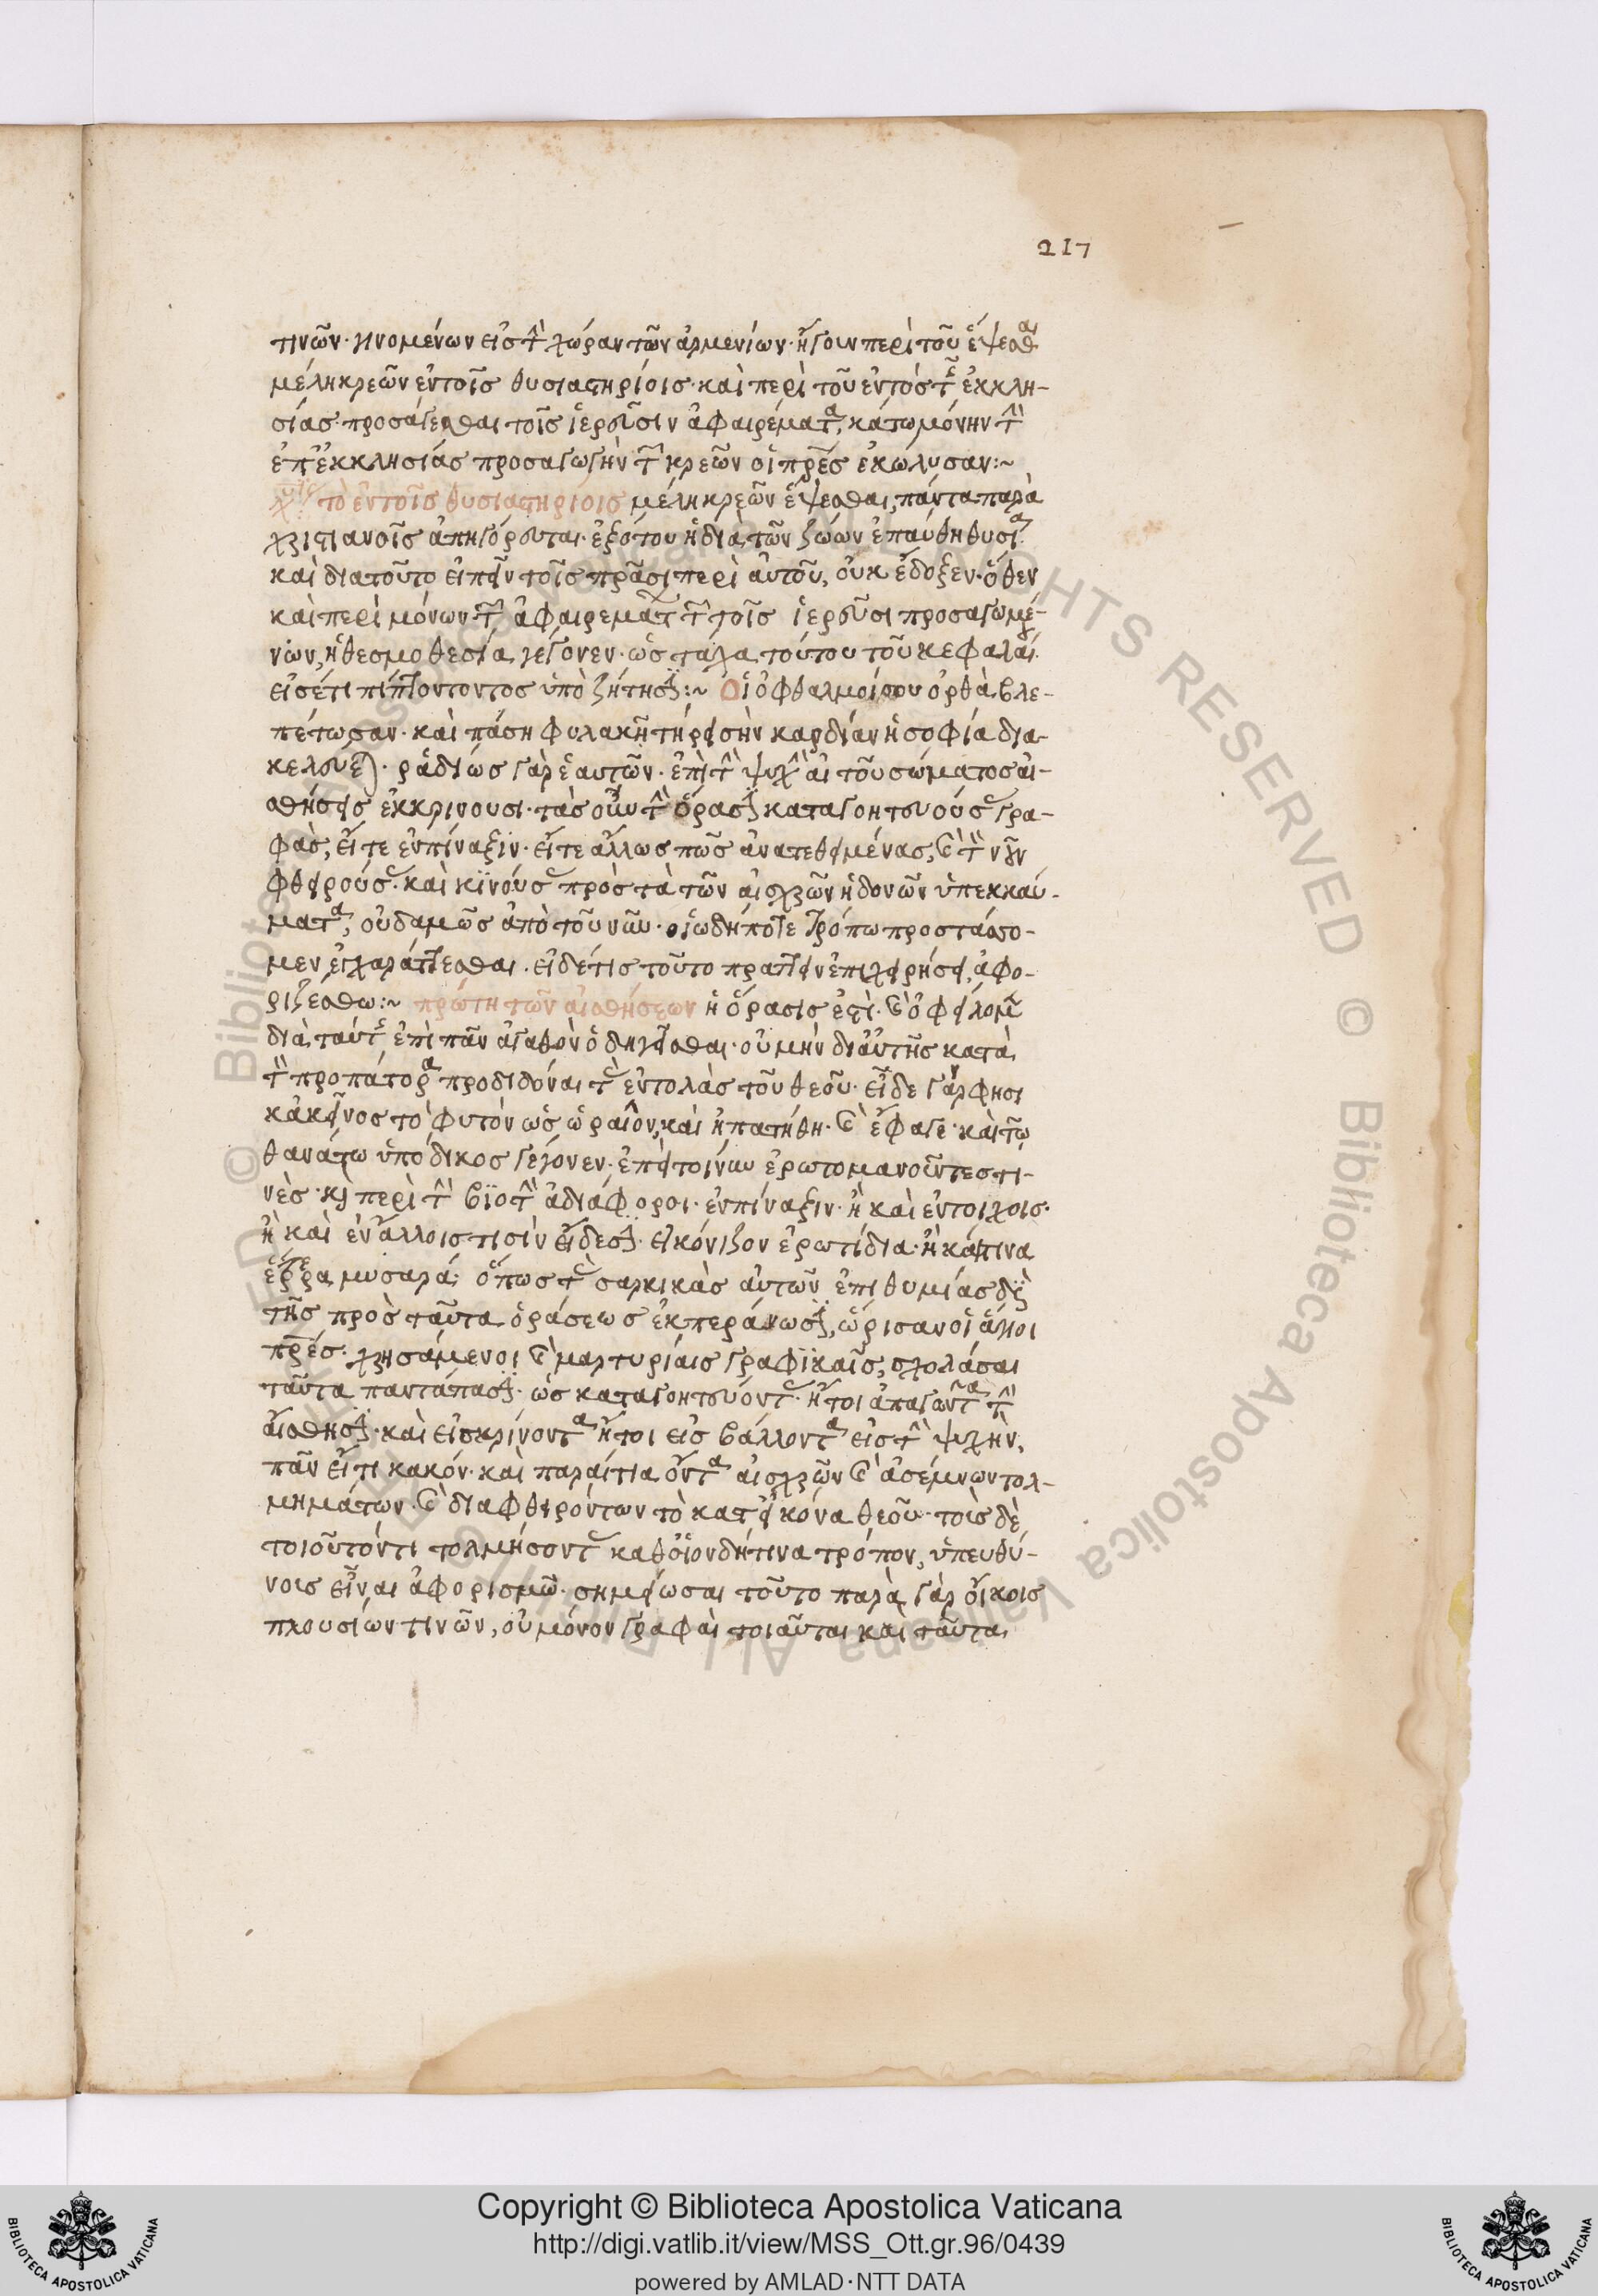 217
τινῶν· γινομένων εἰς τ̀ χώραν τῶν ἀρμενίων· ἤγουν περὶ τοῦ ἕψεσθαι
μέλη κρεῶν ἐν τοῖς θυσιαστηρίοις· καὶ περὶ τοῦ ἐντὸς τ̃ ἐκκλη-
σίας προσάγεσθαι τοῖς ἱερεῦσιν ἀφαιρέματα, κάτω μόνην τ̀
ἐπ' ἐκκλησίας προσαγωγὴν τ̃ κρεῶν οἱ πρ̅ε̅ς ἐκώλυσαν:~
τὸ ἐν τοῖς θυσιαστηρίοις μέλη κρεῶν ἕψεσθαι, πάντα παρὰ
χριστιανοῖς ἀπηγόρευται· ἐξ ὅτου ἡ διὰ τῶν ζώων ἐπαύθη θυσία·
καὶ διατοῦτο εἰπεῖν τοῖς πρ̅ά̅σι περὶ αὐτοῦ, οὐκ ἔδοξεν· ὅθεν
καὶ περὶ μόνων τ̃ ἀφαιρεμάτ τ̃ τοῖς ἱερεῦσι προσαγωμέ-
νων, ἡ θεσμοθεσία γέγονεν· ὡς τάχα τούτου τοῦ κεφαλαί
εἰσέτι πίπτοντοντος ὑπὸ ζήτησιν:~ Οἱ ὀφθαλμοί σου ὀρθὰ βλε-
πέτωσαν· καὶ πάση φυλακῆ τήρει σὴν καρδίαν ἡ σοφία δια-
κελεύε)· ῥαδίως γὰρ ἑαυτῶν· ἐπὶ τ̀ ψυχ̀ αἱ τοῦ σώματος αἰ-
σθήσεις ἐκκρινουσι· τὰς οὖν τ̀ ὅρασιν καταγοητευούσ γρα-
φάς, εἴτε ἐν πίναξιν· εἴτε ἄλλως πῶς ἀνατεθειμένας, κ̀ τ̀ νοῦν
φθειρούσ· καὶ κινούσ πρὸς τὰ τῶν αἰσχρῶν ἡδονῶν ὑπεκκαύ-
ματα, οὐδαμῶς ἀπὸ τοῦ νῦν· οἱωδήποτε τρόπω προστάσσο-
μεν ἐγχαράττεσθαι· εἰ δέ τις τοῦτο πράττειν ἐπιχειρήσει, ἀφο-
ριζέσθω:~ πρώτη τῶν αἰσθήσεων ἡ ὅρασις ἐστὶ· κ̀ ὀφείλομ
διὰ ταύτ ἐπὶ πᾶν ἀγαθὸν ὁδηγεῖσθαι· οὐ μὴν δι' αὐτῆς κατὰ
τ̀ προπάτορα προδιδόναι τ̀ ἐντολὰς τοῦ θεοῦ· εἶδε γάρ φησι
κἀκεῖνος τὸ φυτὸν ὡς ὡραῖον, καὶ ἠπατήθη· κ̀ ἔφαγε· καὶ τῷ
θανάτω ὑπόδικος γέγονεν· ἐπεὶ τοίνυν ἐρωτομανοῦντες τι-
νὲς· κ̀ περὶ τ̀ βιοτ̀ ἀδιάφοροι· ἐν πίναξιν· ἢ καὶ ἐν τοίχοις·
ἢ καὶ ἐν ἄλλοις τισὶν εἴδεσιν· εἰκόνιζον ἐρωτίδια· ἢ κάτινα
ἕτερα μυσαρά· ὅπως τ̀ σαρκικὰς αὐτῶν ἐπιθυμίας διὰ
τῆς πρὸς ταῦτα ὁράσεως ἐκπεράνωσιν, ὥρισαν οἱ ἅγιοι
πρ̅έ̅ς· χρησάμενοι κ̀ μαρτυρίαις γραφικαῖς, σχολάσαι
ταῦτα παντάπασιν· ὡς καταγοητεύοντ· ἤτοι ἀπατῶντα τ̀
αἴσθησιν· καὶ εἰσκρίνοντα ἤτοι εἰσβάλλοντα εἰς τ̀ ψυχὴν,
πᾶν εἴτι κακόν· καὶ παραίτια ὄντα αἰσχρῶν κ̀ ἀσέμνων τολ-
μημάτων· κ̀ διαφθειρόντων τὸ κατ' εἰκόνα θεοῦ· τοὺς δὲ
τοιοῦτόν τι τολμήσοντ καθ' οἷον δήτινα τρόπον, ὑπευθύ-
νοις εἶναι ἀφορισμῶ· σημείωσαι τοῦτο παρὰ γὰρ οἴκοις
πλουσίων τινῶν, οὐ μόνον γραφαὶ τοιαῦται καὶ ταῦτα
Copyright © Biblioteca Apostolica Vaticana
http://digi.vatlib.it/view/MSS_Ott.gr.96/0439
powered by AMLAD·NTT DATA